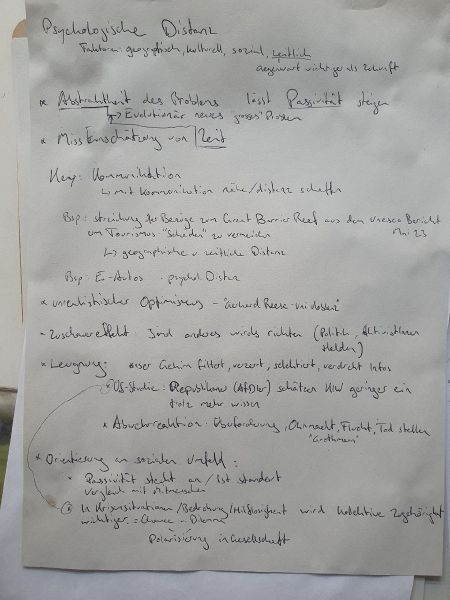 Psychologische Distanz
Faktoren: geographisch, kulturell, sozial, zeitlich
Gegenwart wichtiger als Zukunft
* Abstraktheit des Problems lässt Passivität steigen
↳ Evolutionär neues "grosses" Problem
* Misseinschätzung von Zeit
Kommunikation
↳ mit Kommunikation nähe/distanz schaffen
Bsp: streichung der Bezüge zum Great Barrier Reef aus dem Unesco Bericht
um Tourismus "Schäden" zu vermeiden
↳ geographische u. zeitliche Distanz
Bsp: E-Autos psychol. Distanz
* unrealistischer Optimismus - "Gerhard Reese
- Zuschauereffekt: Irgend anderes wirds richten (Politik, AktivistInnen
Helden)
* Leugnung: unser Gehirn filtert, verzerrt, selektiert, verdreht Infos
US-Studie: Republikaner (AfDler) schätzen geringer ein
trotz mehr wissen
* Abwehrreaktion: Überforderung, Ohnmacht, Flucht, Tod stellen
* Orientierung an sozialen Umfeld:
* Passivität steckt an / Ist standart
Vergleich mit Mitmenschen
In Krisensituationen/Bedrohung/Hilflosigkeit wird kollektive Zugehörigkeit
wichtiger = Chance u. Dilemma
Polarisierung in Gesellschaft